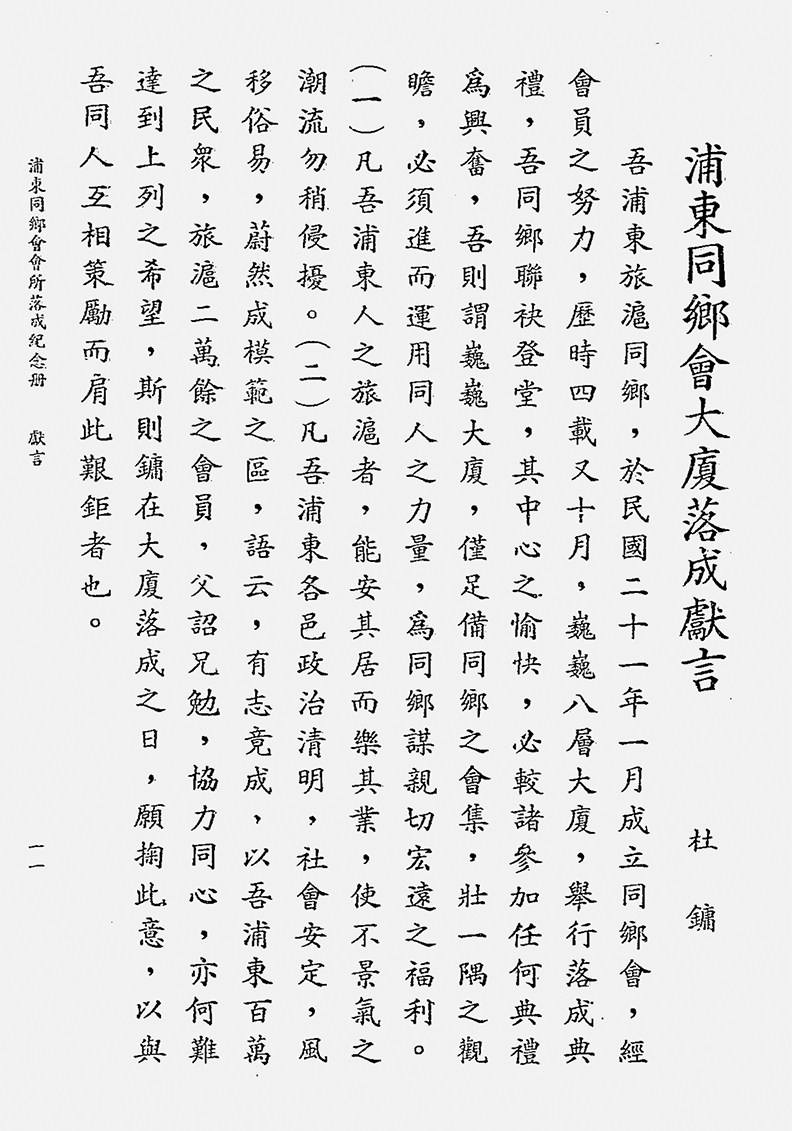 浦東同鄉會大廈落成獻言
杜鏞
吾浦東旅滬同鄉，於民國二十一年一月成立同鄉會，經
會員之努力，歷時四載又十月，巍巍八層大廈，舉行落成典
禮，吾同鄉聯袂登堂，其中心之愉快，必較諸參加任何典禮
爲興奮，吾則謂巍巍大廈，僅足備同鄉之會集，壯一隅之觀
瞻，必須進而運用同人之力量，爲同鄉謀親切宏遠之福利。
（一）凡吾浦東人之旅滬者，能安其居而樂其業，使不景氣之
潮流勿稍侵擾。（二）凡吾浦東各邑政治清明，社會安定，風
移俗易，蔚然成模範之區，語云，有志竟成，以吾浦東百萬
之民衆，旅滬二萬餘之會員，父詔兄勉，協力同心，亦何難
達到上列之希望，斯則鏞在大廈落成之日，願掬此意，以與
吾同人互相策勵而肩此艱鉅者也。
浦東同鄉會會所落成紀念册　獻言
一一